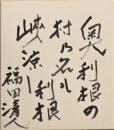 奥利根の
村乃名も利根
峡涼し
福田清人